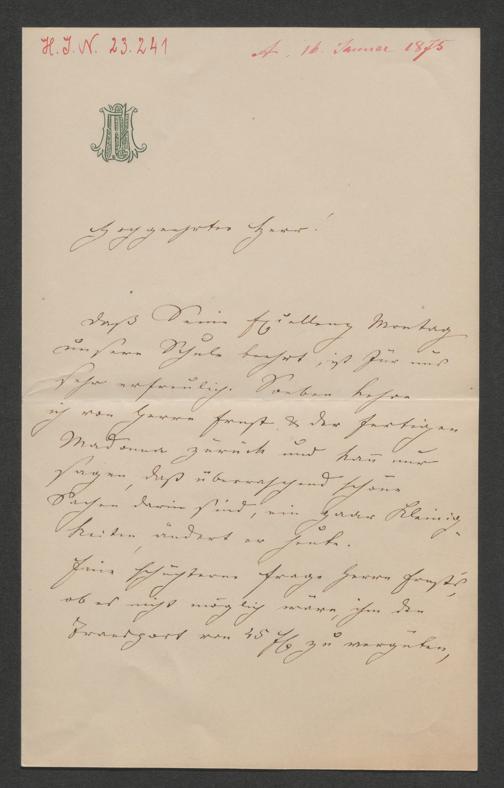 H. I. N. 23.241
A. 16. Januar 1875
Hochgeehrter Herr!
Daß Seine Exzellenz Montag
unsere Schule beehrt, ist für uns
sehr erfreulich. Soeben kehre
ich von Herrn Ernst & der fertigen
Madonna zurück und kann nur
sagen, daß überraschend schöne
Sachen darin sind, ein paar Kleinig-
keiten, ändert er heute.
Eine schüchterne Frage Herrn Ernst's,
ob es nicht möglich wäre, ihm den
Transport von 45 zu vergüten,